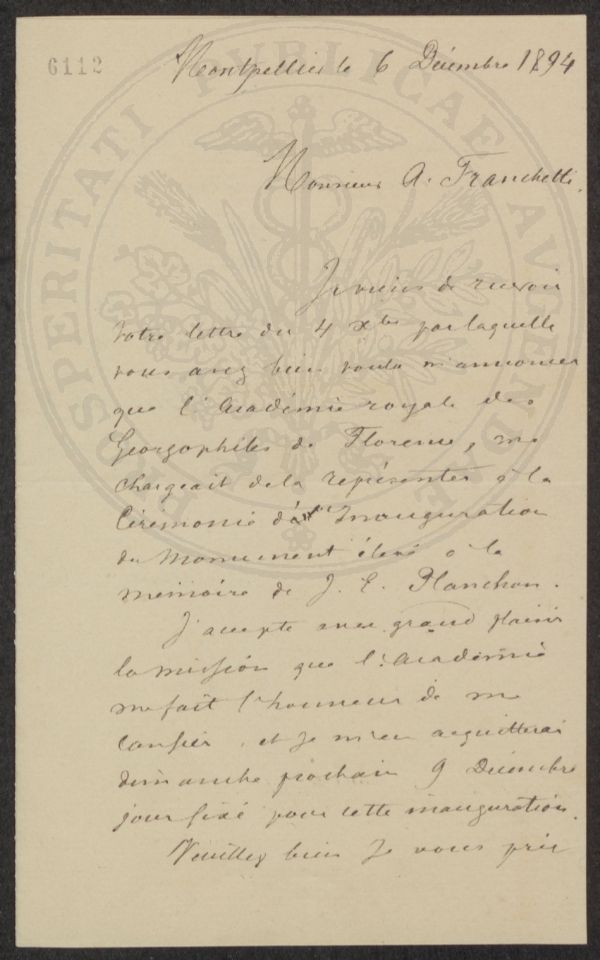 6112
Montpellier le 6 Décembre 1894
Monsieur A. Franchetti.
Je viens de recevoir
votre lettre du 4 Xbre par laquelle
vous avez bien voulu m'annoncer
que l'Académie royale des
Georgophiles de Florence, me
chargeait de la représenter à la
Cérémonie d'Inauguration
du Monument élevé à la
mémoire de J. E. Planchon.
J'accepte avec grand plaisir
la mission que l'Académie
me fait l'honneur de me
confier, et je m'en acquitterai
dimanche prochain 9 Décembre
jour fixé pour cette inauguration.
Veuillez bien je vous prie
PROSPERITATI PVBLICAE AVGENDAE